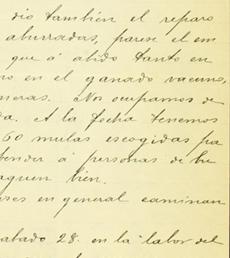 dio también el reparo
aburradas, parese el em
que á abido tanto en
no en el ganado vacuno,
neras. Nos ocupamos de
da. A la fecha tenemos
60 mulas escogidas pa
tender á personas de bu
aguen bien.
ses en general caminan
sabado 28. en la labor del